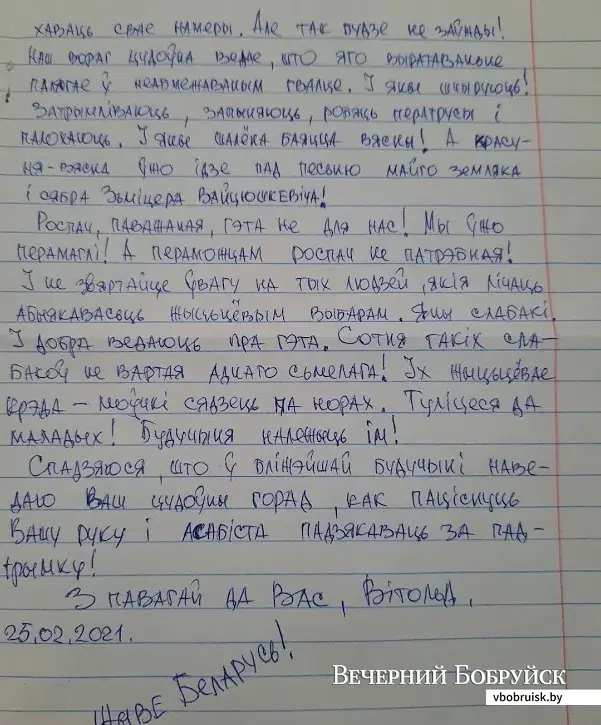 хаваць свае намеры. Але так будзе не заўжды!
Наш вораг цудоўна ведае, што яго выратаванне
палягае ў неабмежаваным гвалце. І яны шчыруюць!
Затрымліваюць, запыняюць, робяць ператрусы і
палохаюць. І яны шалёна баяцца вясны! А красу-
ня-вясна ўжо ідзе пад песню майго земляка
і сябра Зьміцера Вайцюшкевіча!
Роспач, паважаная, гэта не для нас! Мы ўжо
перамаглі! А пераможцам роспач не патрэбная!
І не звяртайце ўвагу на тых людзей, якія лічаць
абыякавасьць жыцьцёвым выбарам. Яны слабакі.
І добра ведаюць пра гэта. Сотня такіх сла-
бакоў не вартая аднаго сьмелага! Іх жыцьцёвае
крэда – моўчкі сядзець па норах. Туліцеся да
маладых! Будучыня належыць ім!
Спадзяюся, што ў бліжэйшай будучыні наве-
даю Ваш цудоўны горад, каб паціснуць
Вашу руку і асабіста падзякаваць за пад-
трымку!
З павагай да Вас, Вітольд.
25.02.2021.
Жыве Беларусь!
Вечерний Бобруйск
vbobruisk.by